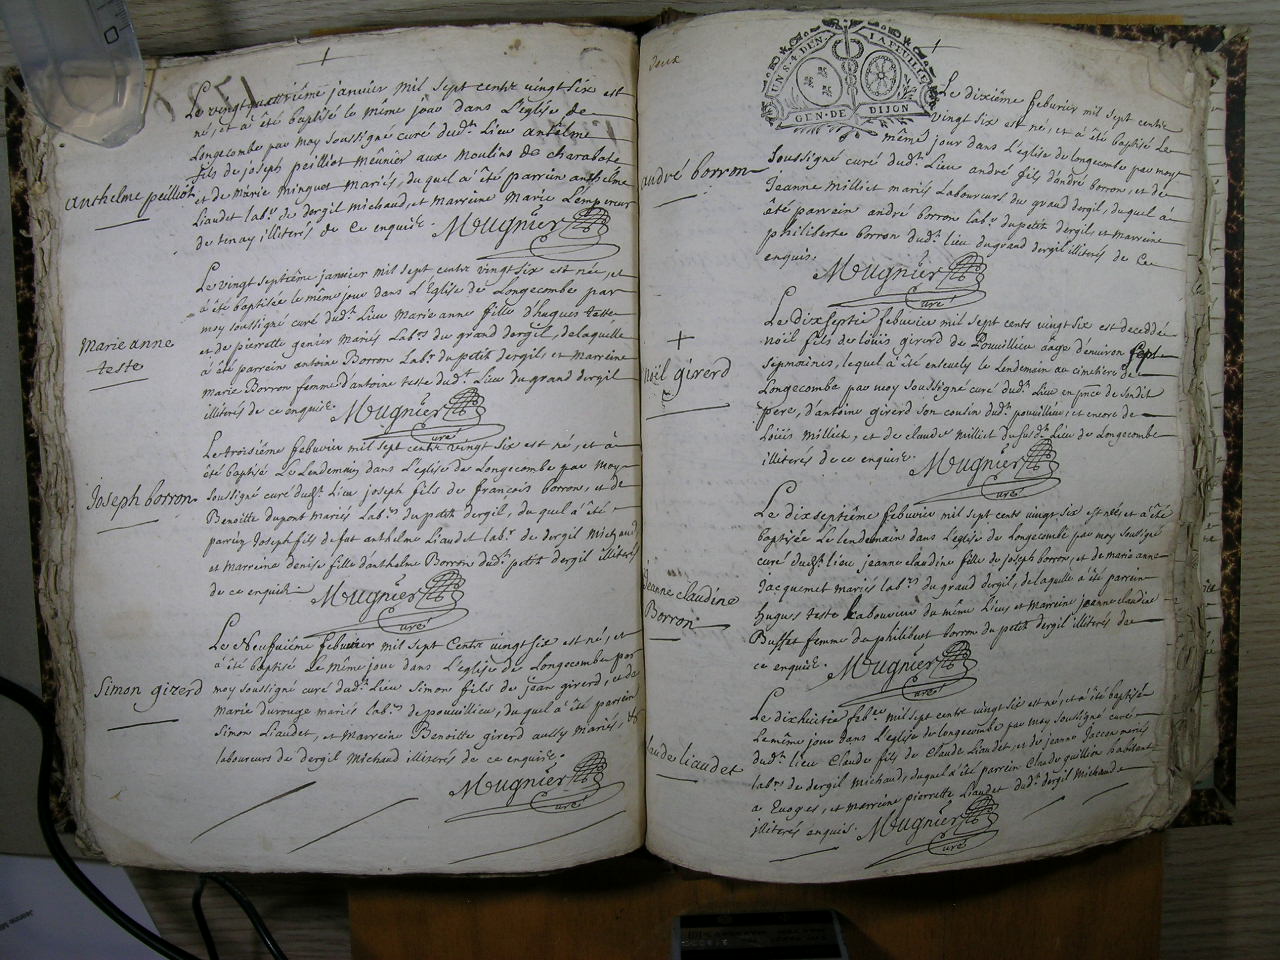 Le vingt quatriéme janvier mil sept cents vingt six est
né, et à été baptisé le même jour dans L'eglise de
Longecombe par moy soussigné curé dud.t Lieu antelme
fils de joseph peilliot meûnier aux moulins de charabote
anthelme peilliot
et de Marie minguet mariés, du quel a été parrein anthelme
Liaudet lab.r de dergil michaud, et marreine Marie Lempereur
de tenay illiterés de ce enquis. Mugnier
Le vingt septiéme janvier mil sept cents vingt six est née, et
à été baptisée le même jour dans L'Eglise de Longecombe par
moy soussigné curé dud.t Lieu Marie anne fille d'hugues teste
Marie anne
teste
et de pierrette genier mariés Lab.rs du grand dergil, de laquelle
à été parrein antoine Borron Lab.r du petit dergil, et marreine
marie Borron femme d'antoine teste dud.t Lieu du grand dergil
illiterés de ce enquis. Mugnier
Curé
Le troisiéme febuvier mil sept cents vingt six est né, et à
été baptisé Le Lendemain dans L'eglise de Longecombe par moy
Joseph borron
soussigné curé dud.t Lieu joseph fils de francois borron, et de
Benoitte dupont mariés Lab.rs du petit dergil, du quel a été
parrein Joseph fils de fut anthelme Liaudet lab.r de dergil michaud
et marreine denise fille d'anthelme Borron dud.t petit dergil illiterés
de ce enquis Mugnier
Curé
Le Neufviéme febuvier mil sept Cents vingt six est né, et
à été baptisé Le même jour dans L'eglise de Longecombe par
Simon girerd
moy soussigné curé dud.t Lieu Simon fils de jean girerd, et de
Marie durouge mariés lab.rs de pouvillieu, du quel à été parrein
Simon Liaudet, et marreine Benoitte girerd aussy mariés, et
laboureurs de dergil Michaud illiterés de ce enquis.
Mugnier
Curé
deux
UN S. 4 DEN. LA FEUILLE
GEN. DE DIJON
Le dixiéme febuvier mil sept cents
vingt six est né, et a été baptisé Le
même jour dans L'eglise de longecombe par moy
andré borron
soussigné curé dud.t Lieu andré fils d'andré borron, et de
Jeanne milliet mariés Laboureurs du grand dergil, du quel à
été parrein andré borron lab.r du petit dergil, et marreine
philiberte borron dud.t lieu du grand dergil illiterés de ce
enquis. Mugnier
Curé
Le dixseptié febuvier mil sept cents vingt six est deceddé
noël fils de loüis girerd de Pouvillieu âgé d'environ sept
noël girerd
sepmaines, lequel à été ensevely le Lendemain au cimetière de
Longecombe par moy soussigné curé dud.t Lieu en pnce de son dit
pere, d'antoine girerd son cousin dud.t pouvillieu, et encore de
Loüis Milliet, et de claude milliet du susd.t Lieu de Longecombe
illiterés de ce enquis. Mugnier
Curé
Le dixseptiéme febuvier mil sept cents vingt six est née, et à été
baptisée Le Lendemain dans L'eglise de Longecombe par moy soussigné
curé dud.t lieu jeanne claudine fille de joseph borron, et de marie anne
Jeanne claudine
Borron
Jacquemet mariés lab.rs du grand dergil, de laquelle a été parrein
hugues teste Laboureur du même Lieu, et marreine jeanne claudine
Buffet femme du philibert borron du petit dergil illiterés de
ce enquis. Mugnier
Curé
Le dixhuitié feb.er mil sept cents vingt six est né, et à été baptisé
Le même jour dans L'eglise de longecombe par moy soussigné curé
dud.t lieu Claude fils de Claude Liaudet, et de jeanne Jaccon mariés
laude liaudet
lab.rs de dergil michaud, duquel a été parrein Claude guillin habitant
a Evoges, et marreine pierrette Liaudet dud.t dergil michaud
illiterés enquis. Mugnier
Curé